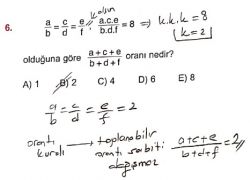 kalsın
6. a/b = c/d = e/f , a.c.e/b.d.f = 8 ⇒ k.k.k = 8
k = 2
olduğuna göre a+c+e/b+d+f oranı nedir?
A) 1 B) 2 C) 4 D) 6 E) 8
a/b = c/d = e/f = 2
orantı kuralı → toplanabilir orantı sabiti değişmez a+c+e/b+d+f = 2